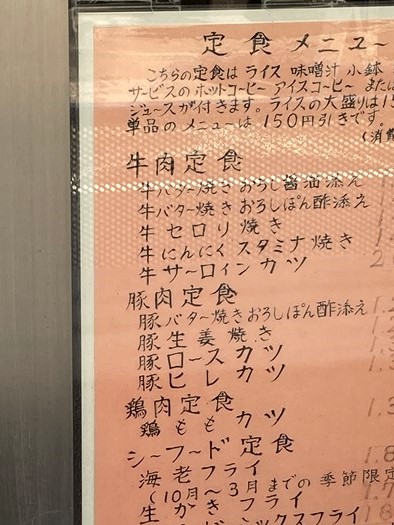 定食メニュー
こちらの定食は ライス 味噌汁 小鉢
サービスの ホットコーヒー アイスコーヒー または
ジュースが付きます。ライスの大盛りは15
単品のメニューは、150円引きです。
(消費
牛肉定食
牛バター焼きおろし醤油添え
牛バター焼きおろしぽん酢添え
牛セロリ焼き
牛にんにくスタミナ焼き
牛サーロインカツ 2
豚肉定食
豚バター焼きおろしぽん酢添え 1.
豚生姜焼き 1.
豚ロースカツ 1.3
豚ヒレカツ 1.3
鶏肉定食
鶏ももカツ 1.3
シーフード定食
海老フライ 1.8
(10月〜3月までの季節限定
生かきフライ 1.7
ックスフライ 1.8